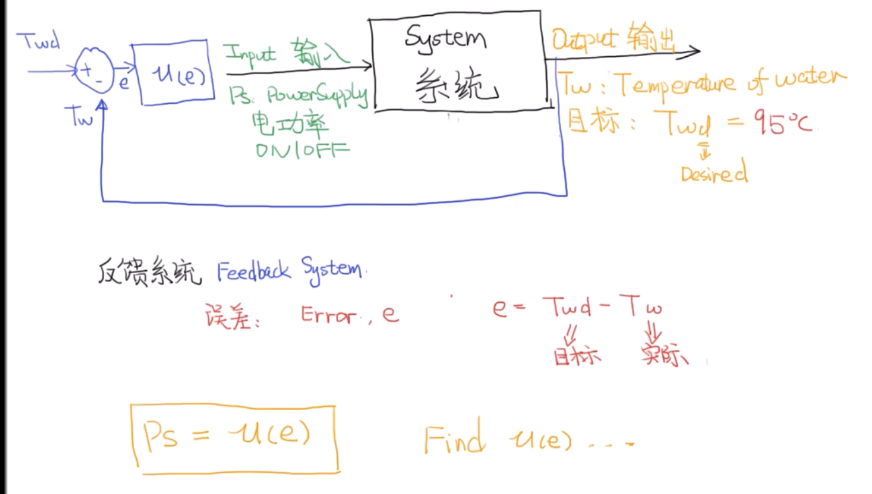 Twd
+
-
e
u(e)
Tw
Input 输入
Ps: PowerSupply
电功率
ON/OFF
System
系统
Output 输出
Tw: Temperature of water
目标: Twd = 95℃
Desired
反馈系统 Feedback System.
误差: Error, e e = Twd - Tw
目标 实际
Ps = u(e) Find u(e) ...